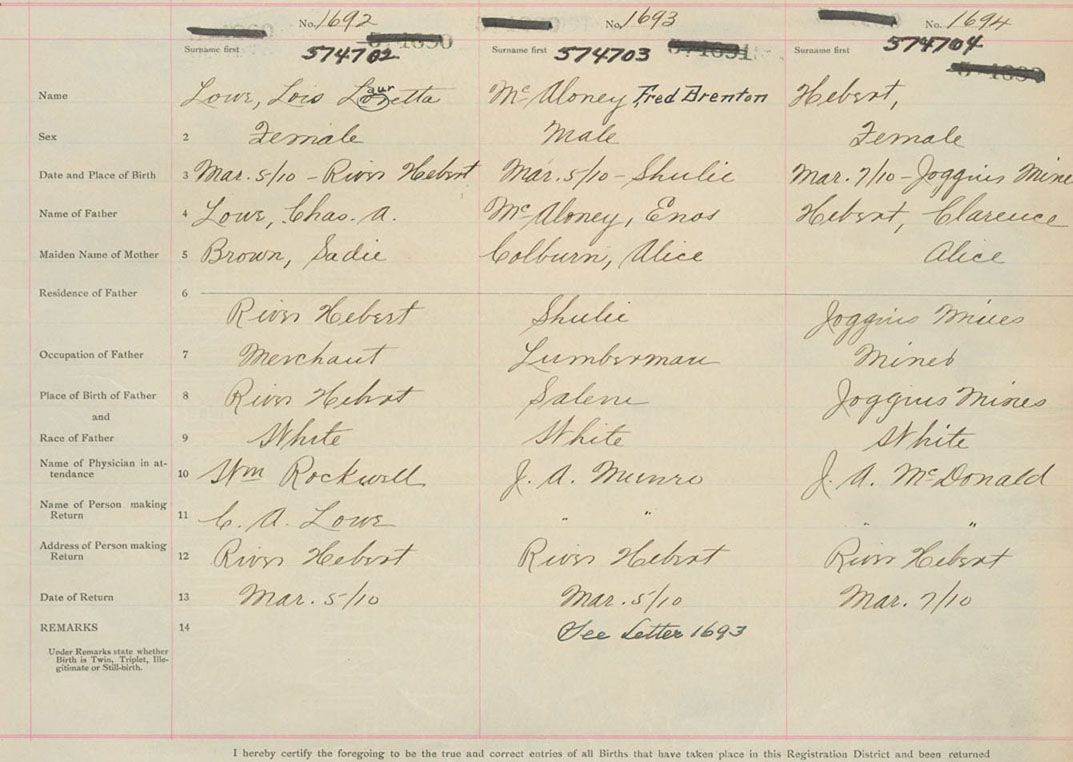 No. 1692 No. 1693 No. 1694
Surname first 574702 Surname first 574703 Surname first 574704
Name Lowe, Lois Lauretta McAloney Fred Brenton Hebert,
Sex 2 Female Male Female
Date and Place of Birth 3 Mar. 5/10 - River Hebert Mar. 5/10 - Shulie Mar. 7/10 - Joggins Mine
Name of Father 4 Lowe, Chas. A. McAloney, Enos Hebert, Clarence
Maiden Name of Mother 5 Brown, Sadie Colburn, Alice Alice
Residence of Father 6
River Hebert Shulie Joggins Mines
Occupation of Father 7 Merchant Lumberman Miner
Place of Birth of Father 8 River Hebert Salem Joggins Mines
and
Race of Father 9 White White White
Name of Physician in at-
tendance 10 Wm Rockwell J. A. Munro J. A. McDonald
Name of Person making
Return 11 C. A. Lowe " " " "
Address of Person making
Return 12 River Hebert River Hebert River Hebert
Date of Return 13 Mar. 5/10 Mar. 5/10 Mar. 7/10
REMARKS 14 See Letter 1693
Under Remarks state whether
Birth is Twin, Triplet, Ille-
gitimate or Still-birth.
I hereby certify the foregoing to be the true and correct entries of all Births that have taken place in this Registration District and been returned